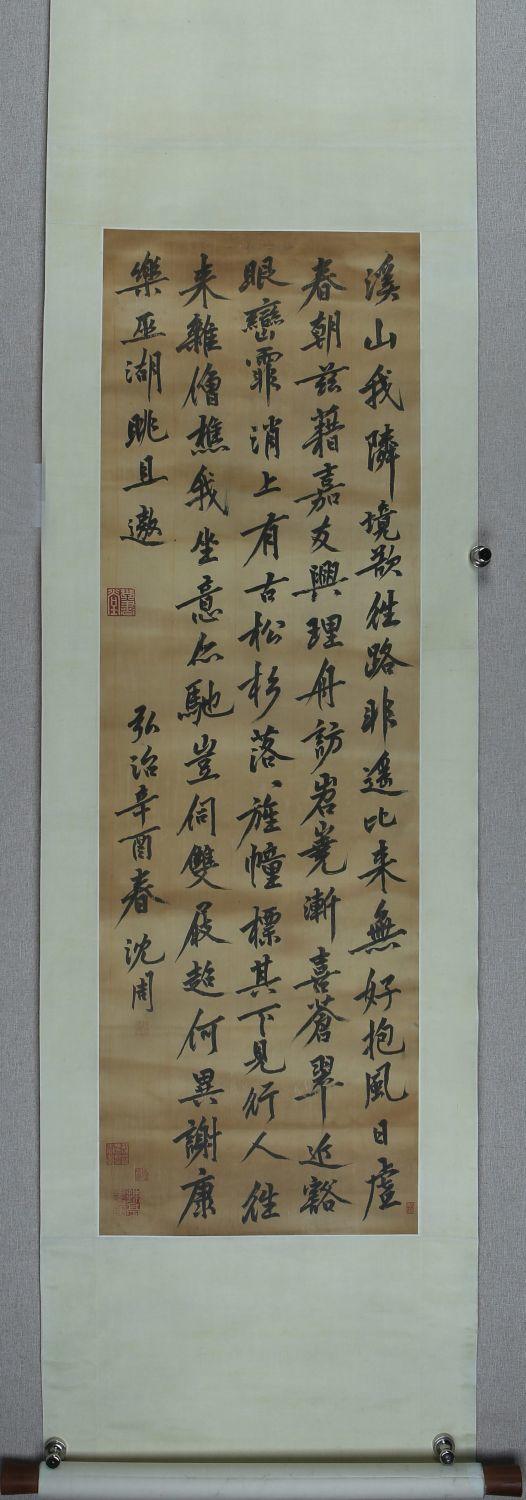 溪山我隣境欲往路非遥比来無好抱風日虛
春朝茲藉嘉友興理舟訪岩嶤漸喜蒼翠近豁
眼巒霏消上有古松杉落、旌幢標其下見行人往
来雜僧樵我坐意忽馳豈伺雙屐超何異謝康
樂巫湖眺且遨
弘治辛酉春沈周